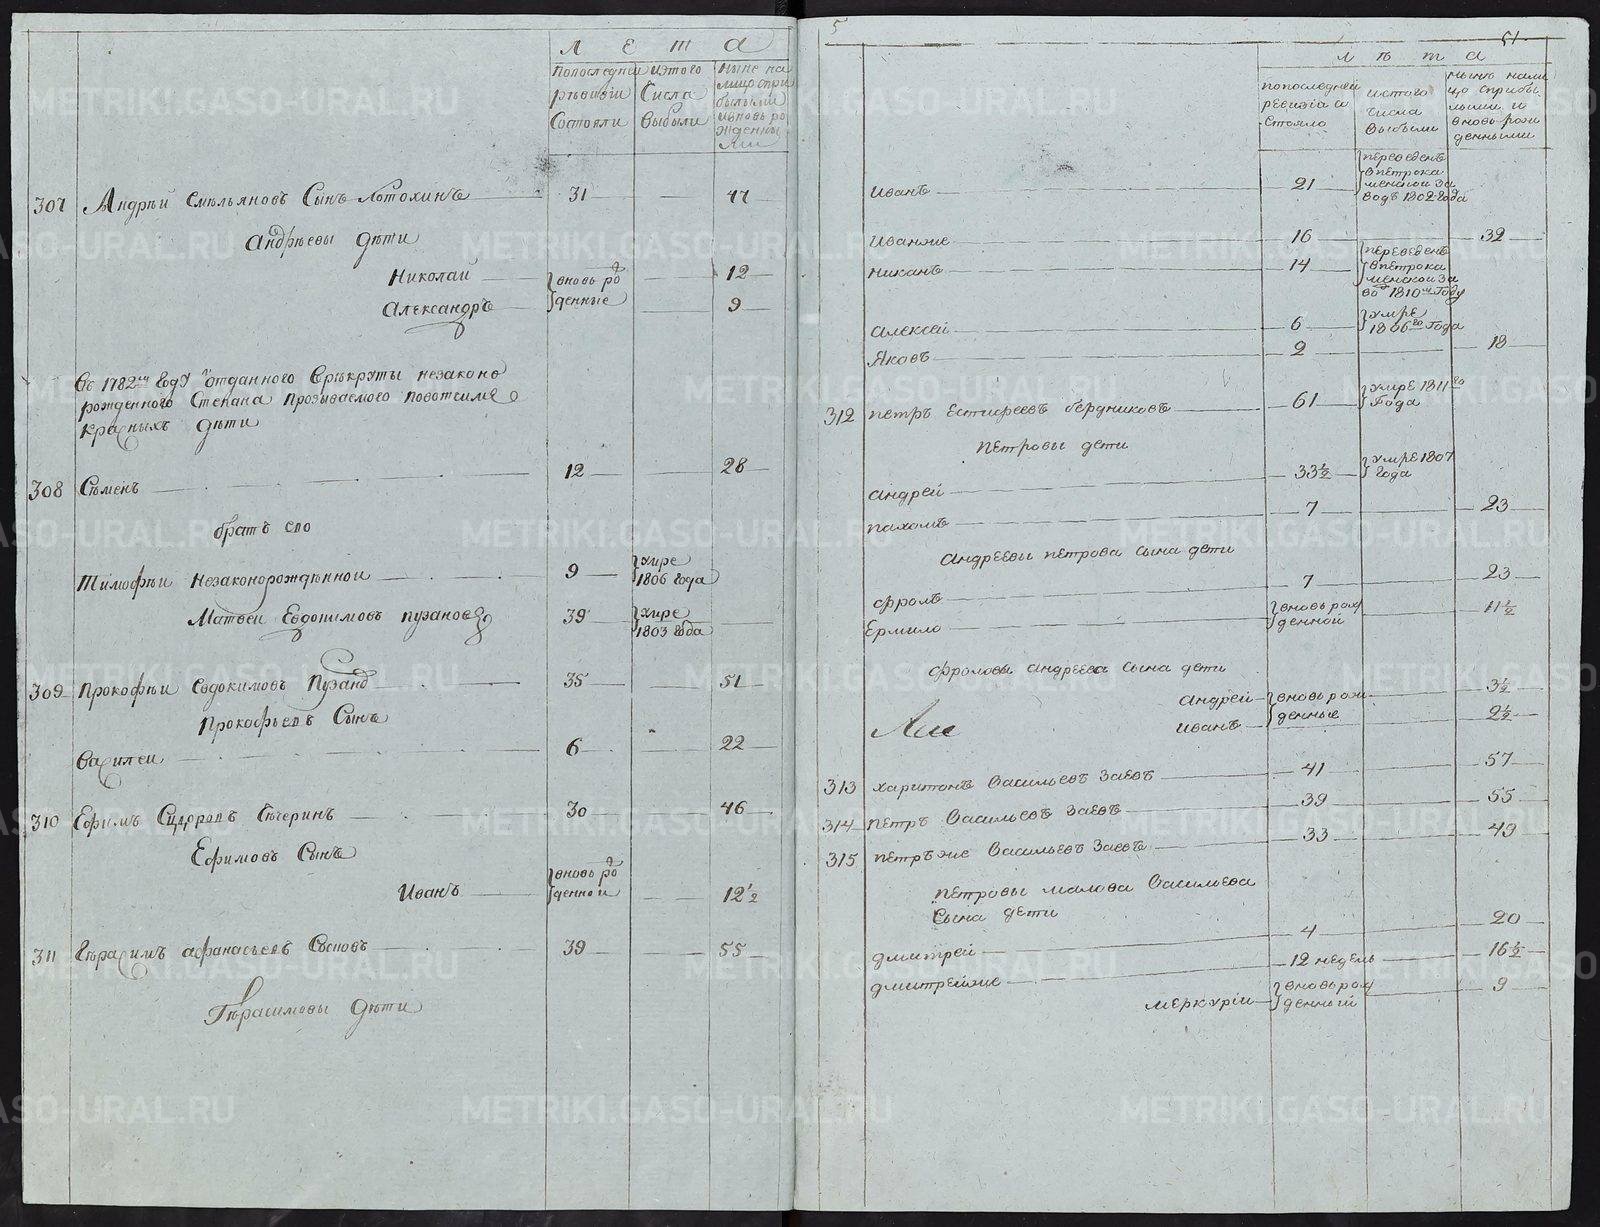 Лета
Попоследнеи рѣвизіи Состояли
Изтого Числа Выбыли
Ныне на лицо спри былыми ивновь ро жденны ми
307 Андрѣи Емельяновъ Сынъ Лотохинъ 31 47
Андрѣевы дѣти
Николаи вновь ро 12
Александръ денные 9
Въ 1782м Году отданного Врѣкруты незаконо
рожденного Степана прозываемого
Красныхъ дѣти
308 Сѣменъ 12 28
братъ его
Тимофѣи Незаконорождѣннои 9 умре 1806 года
Матвеи Евдокимовъ пузановъ 39 умре 1803 года
309 Прокофѣи Евдокимовъ Пузановъ 35 51
Прокофьевъ Сынъ
Василеи 6 22
310 Ефимъ Сидоровъ Сѣчеринъ 30 46
Ефимовъ Сынъ
Иванъ вновь ро деннои 12½
311 Гѣрасимъ афанасьевъ Сосновъ 39 55
Гѣрасимовы дѣти
5
51
лѣта
попоследней ревизіи состояло
изтого числа выбыли
нынѣ нали цо сприбы лыми и вновь рож денными
Иванъ 21 переведенъ впетрока менской за водъ 1802 года
Иванже 16 32
Никанъ 14 переведенъ впетрока менской за во 1810м Году
Алексей 6 умре 1806го Года
Яковъ 2 18
312 петръ Естифеевъ бердниковъ 61 умре 1811го Года
Петровы дети
андрей 33½ умре 1807 Года
пахомъ 7 23
Андреевы петрова сына дети
фролъ 7 23
Ермило вновь рож денной 11½
фроловы андреева сына дети
андрей вновь рож 3½
иванъ денные 2½
313 харитонъ Васильевъ Заевъ 41 57
314 Петръ Васильевъ Заевъ 39 55
315 петръже Васильевъ Заевъ 33 49
петровы малова Васильева
Сына дети
дмитрей 4 20
дмитрейже 12 недель 16½
меркурiи вновь рож денный 9
METRIKI.GASO-URAL.RU